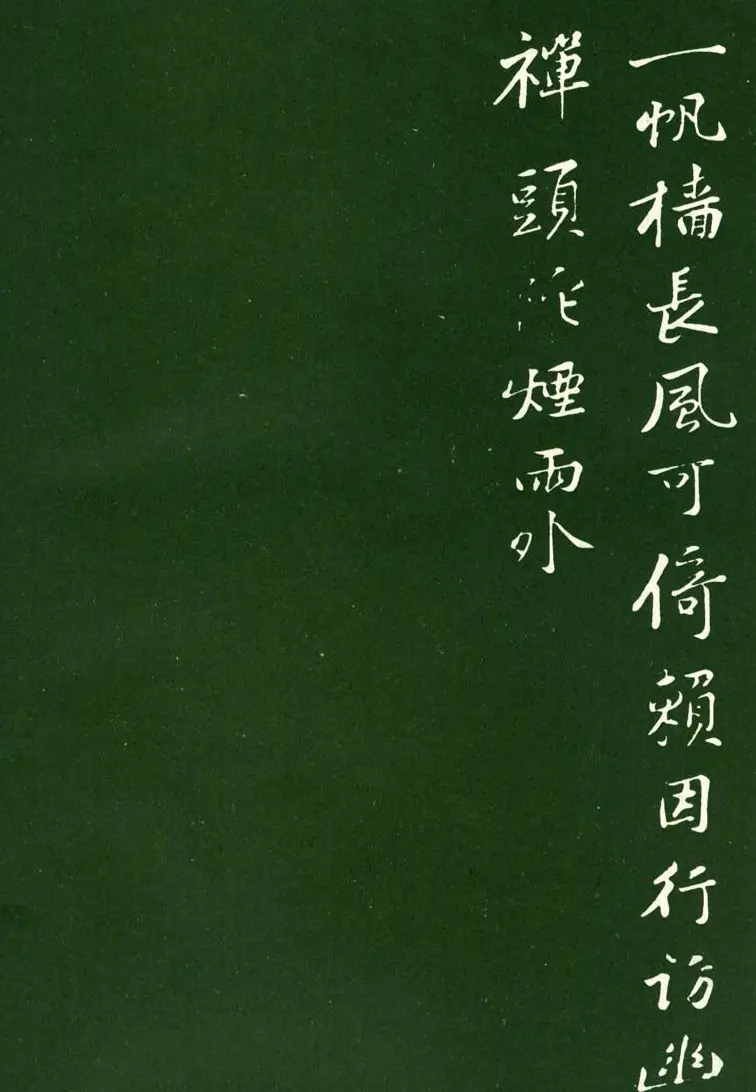 一帆檣長風可倚賴因行訪幽
禪頭陀煙雨外